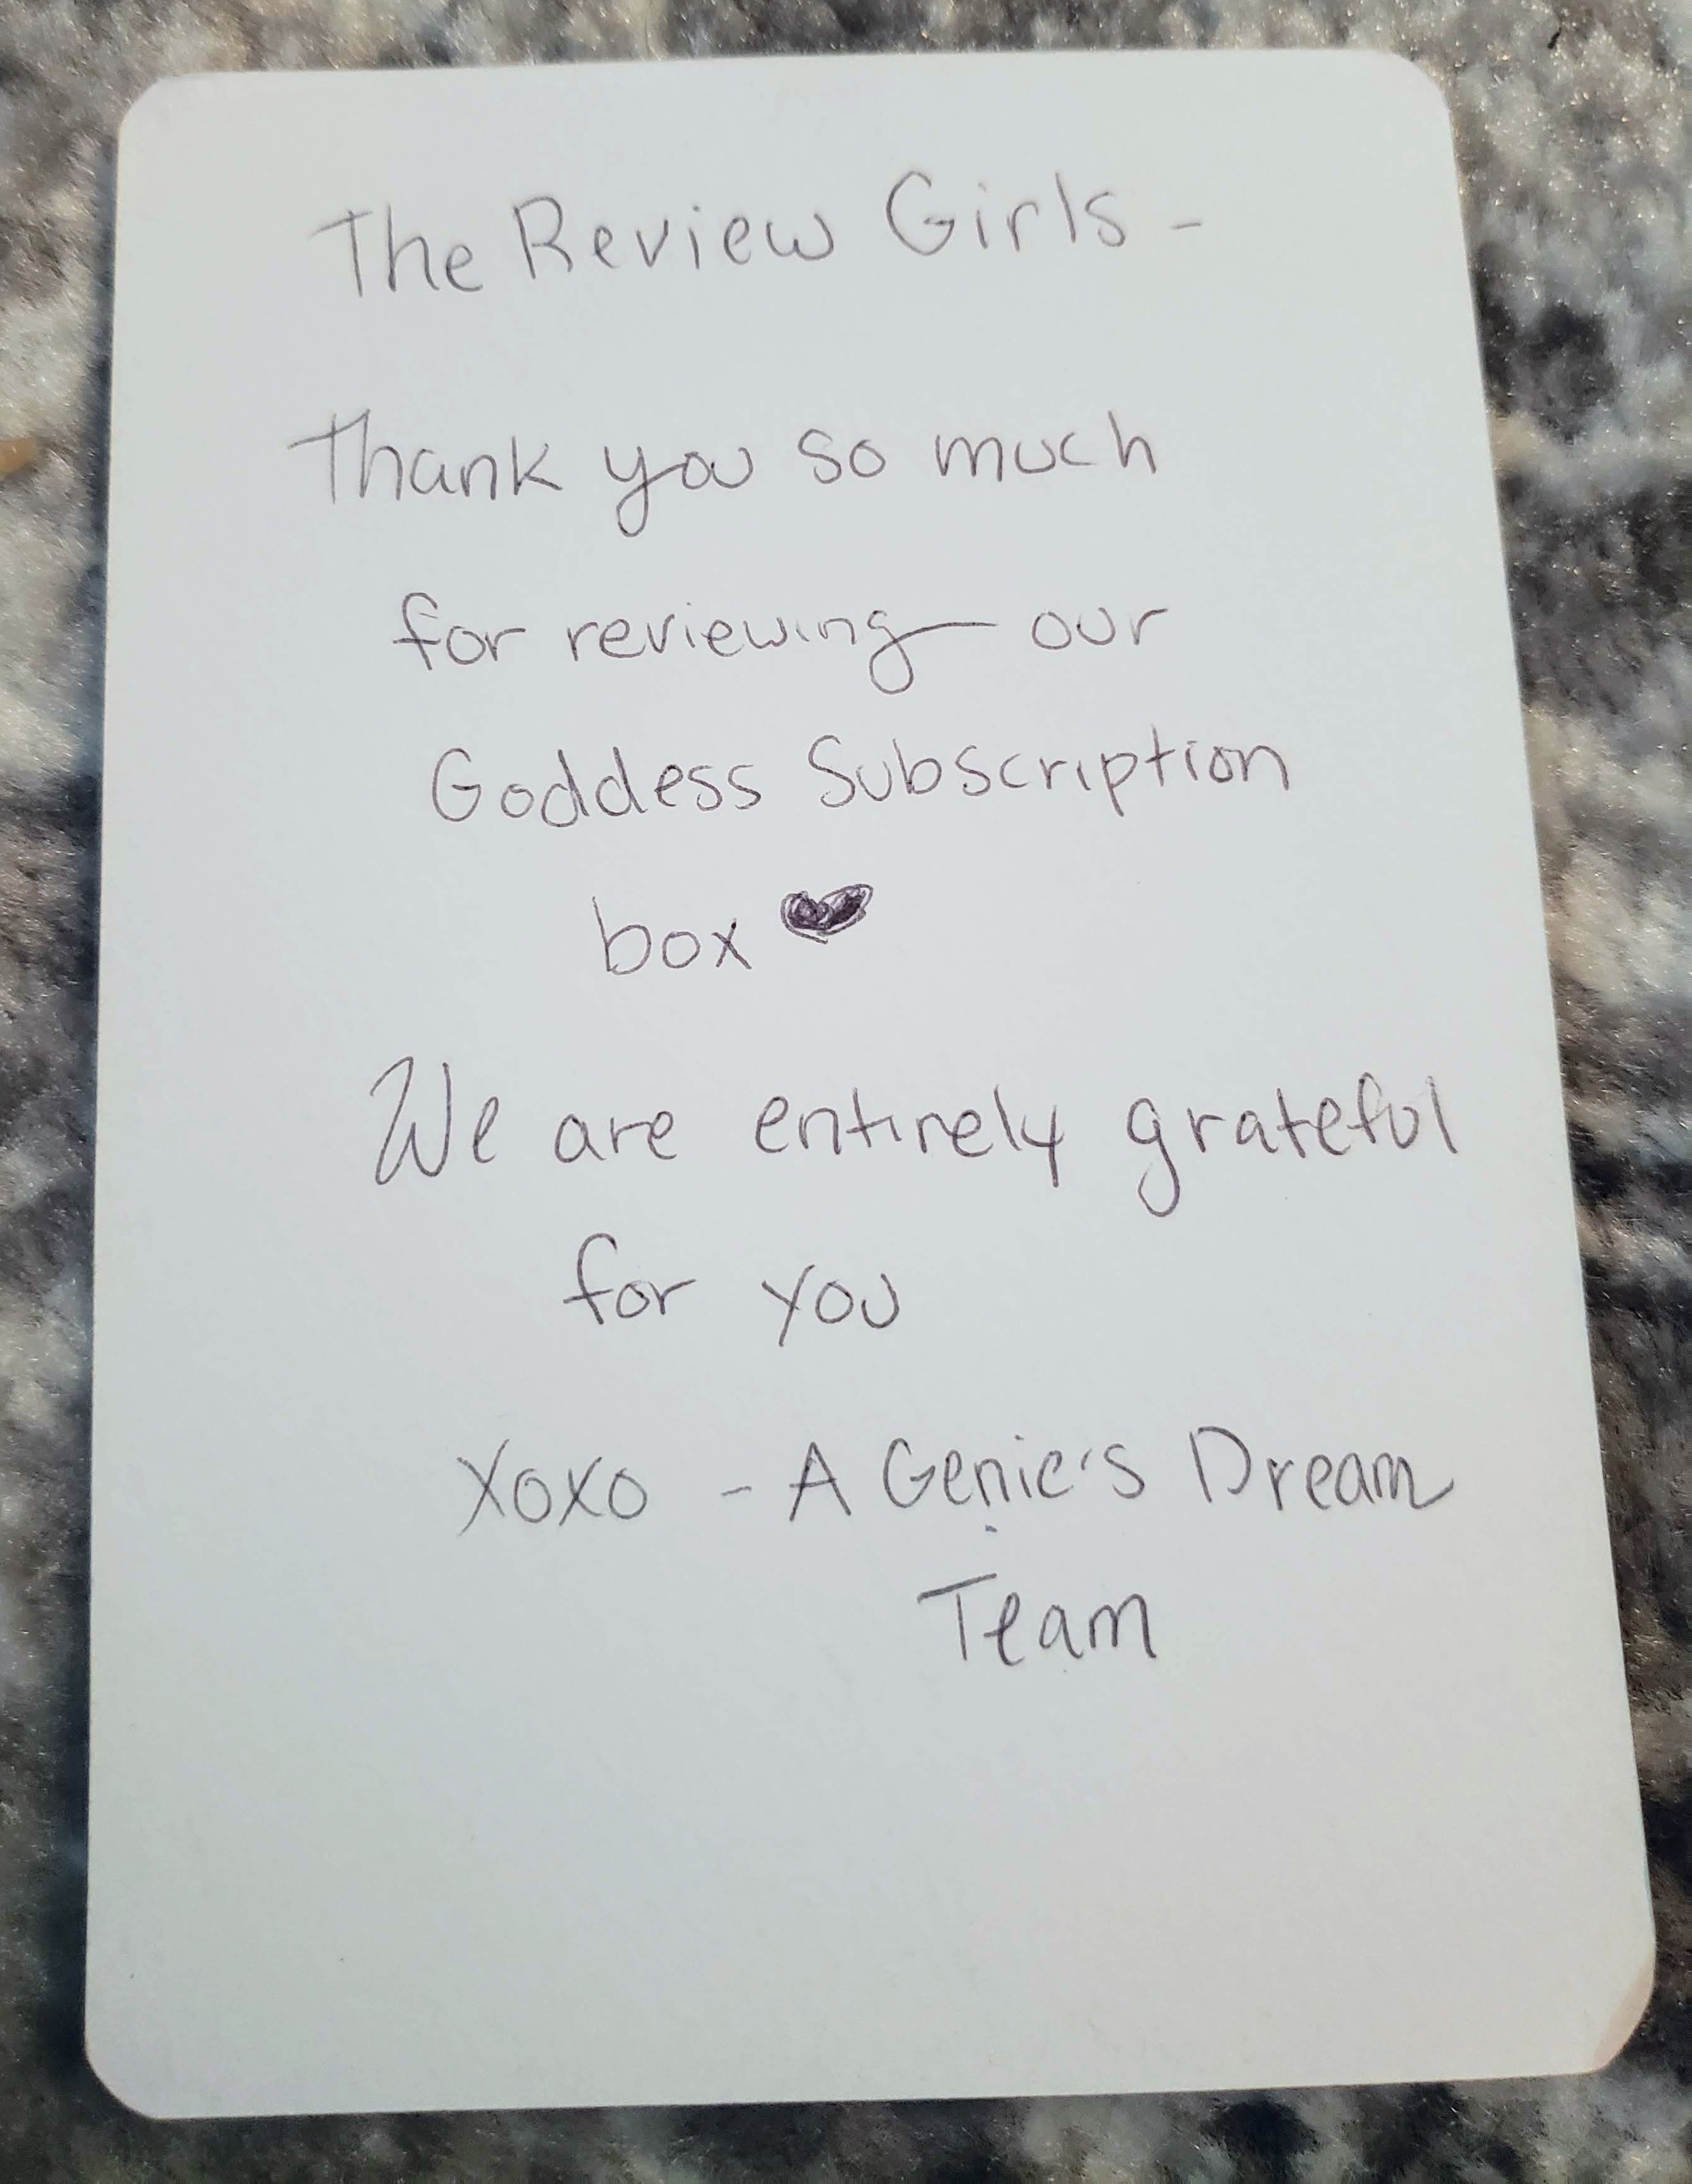 The Review Girls -
Thank you so much
for reviewing our
Goddess Subscription
box ♥
We are entirely grateful
for you
xoxo - A Genie's Dream
Team